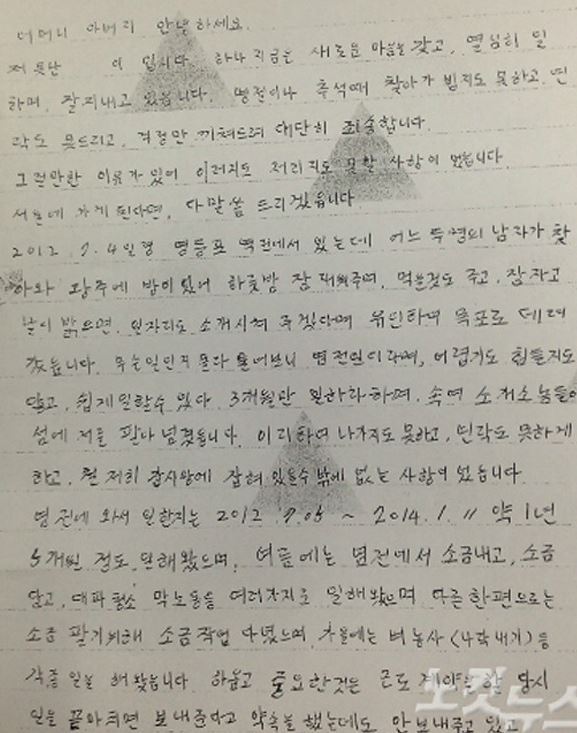 어머니 아버지 안녕하세요.
저 못난 이 입니다. 하나 지금은 새로운 마음을 갖고, 열심히 일
하며, 잘지내고 있읍니다. 명절이나 추석때 찾아가 뵙지도 못하고, 연
락도 못드리고, 걱정만 끼쳐드려 대단히 죄송합니다.
그럴만한 이유가 있어 이러지도 저러지도 못할 사항이 었읍니다
서울에 가게 된다면, 다 말씀 드리겠읍니다
2012. 7. 4일경 영등포 역전에서 있는데 어느 두명의 남자가 찾
아와 광주에 방이 있어 하룻밤 잠 재워주며, 먹을것도 주고, 잠자고
날이 밝으면, 일자리도 소개시켜 주겠다며 유인하며 목포로 데려
갔읍니다. 무슨일인지 몰라 물어보니 염전일이라며, 어렵지도 힘들지도
않고, 쉽게 일할수 있다 3개월만 일하라 하며, 속여 소개소 놈들이
섬에 저를 팔아 넘겼읍니다. 이리하여 나가지도 못하고, 연락도 못하게
하고, 철저히 감시망에 잡혀 있을수 밖에 없는 사항이 었읍니다
염전에 와서 일한지는 2012. 7. 05 ~ 2014. 1. 11 약 1년
5개월 정도 일해왔으며, 여름에는 염전에서 소금내고, 소금
담고, 대파 청소 막노동을 여러가지로 일해 왔으며 다른 한편으로는
소금 팔기위해 소금작업 다녔으며, 가을에는 벼 농사 (나락 내기) 등
각종 일을 해 왔읍니다. 하옵고 중요한것은 근로 계약을 할 당시
일을 끝마치면 보내준다고 약속을 했는데도 안 보내주고 있고
노컷뉴스